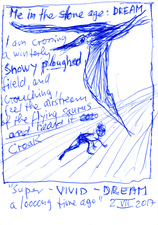 Me in the stone age: DREAM
I am croning
a winterly
snowy ploughed
field, and
Crouching I
feel the airstream
of the flying saurus
and heard it
Creak
"Super-VIVID-DREAM
a loooong time ago"
2 VII 2017